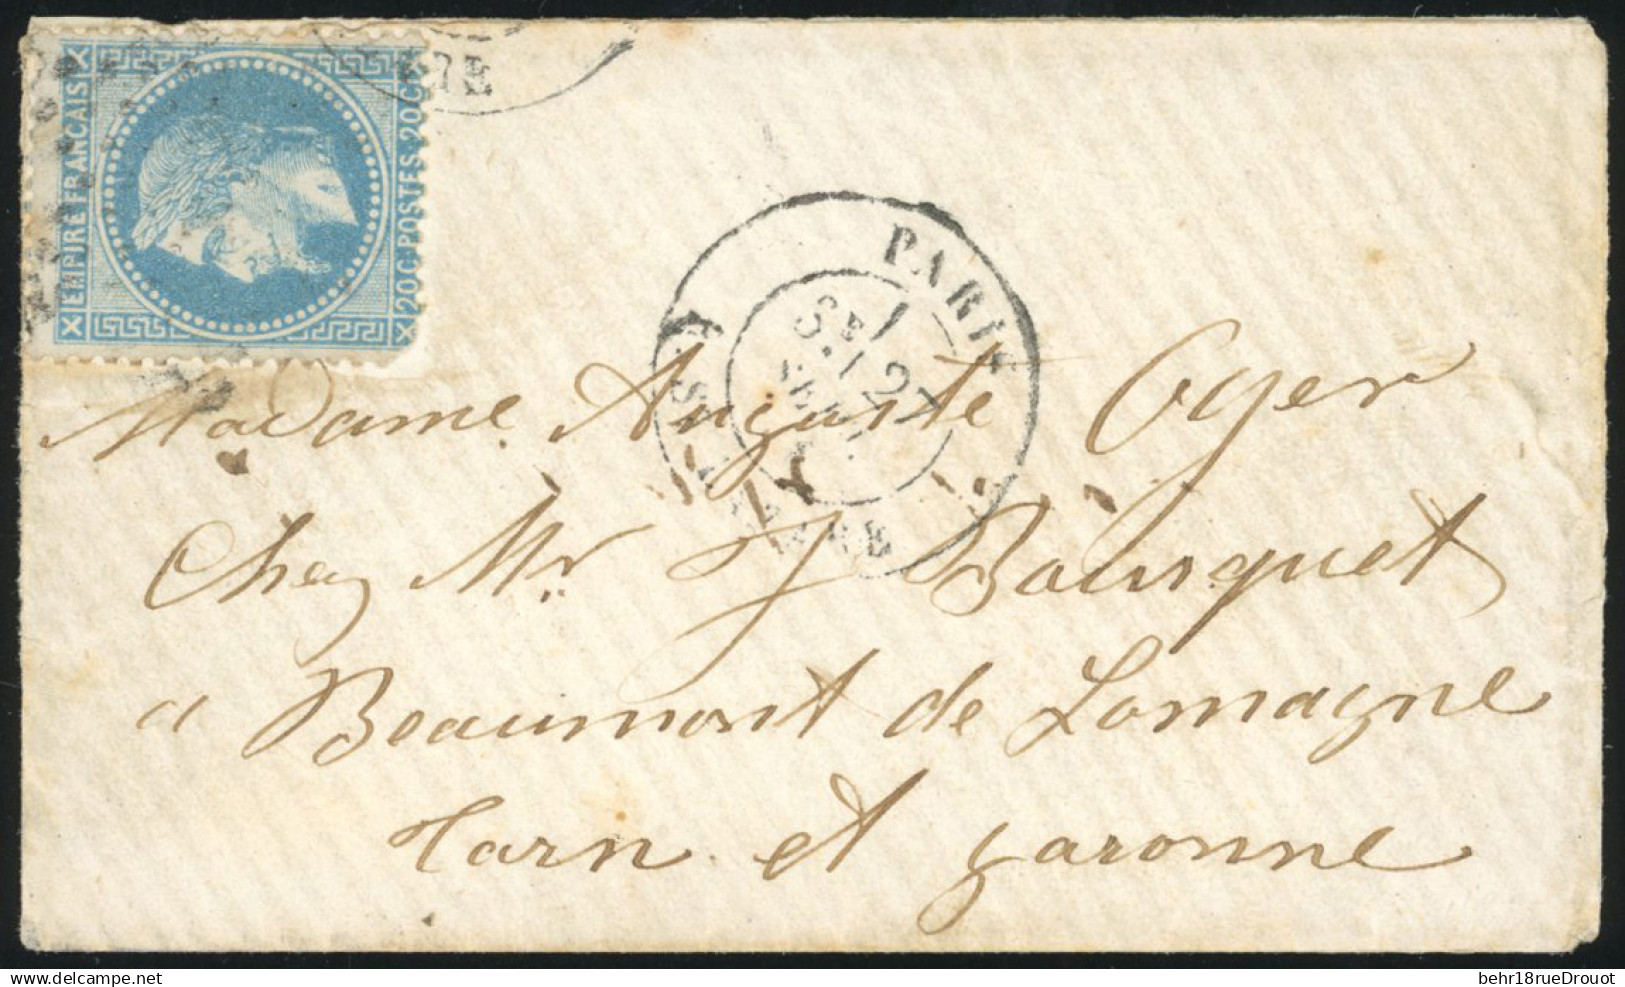 EMPIRE FRANCAIS
20 C. POSTES 20 C.
PARIS
R. ST LAZARE
27
Madame Auguste Oger
Chez Mr J Bousquet
a Beaumont de Lomagne
Tarn et garonne
delcampe.net
behr18rueDrouot